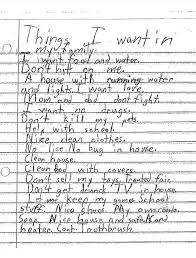 Things I want in
my family.
I want food and water.
Don't hit on me.
A house with running water
and lights. I want love.
Mom and dad don't fight.
I want no drugs.
Don't kill my pets.
Help with school.
Nice clean clothes.
No lice. No bug in house.
Clean house.
Clean bed with covers.
Don't sell my toys, treated fair.
Don't get drunk. TV in house
Let me keep my School
stuff. Nice shoes. My own comb.
Soap. Nice house and safe and
heater. Coat. toothbrush.